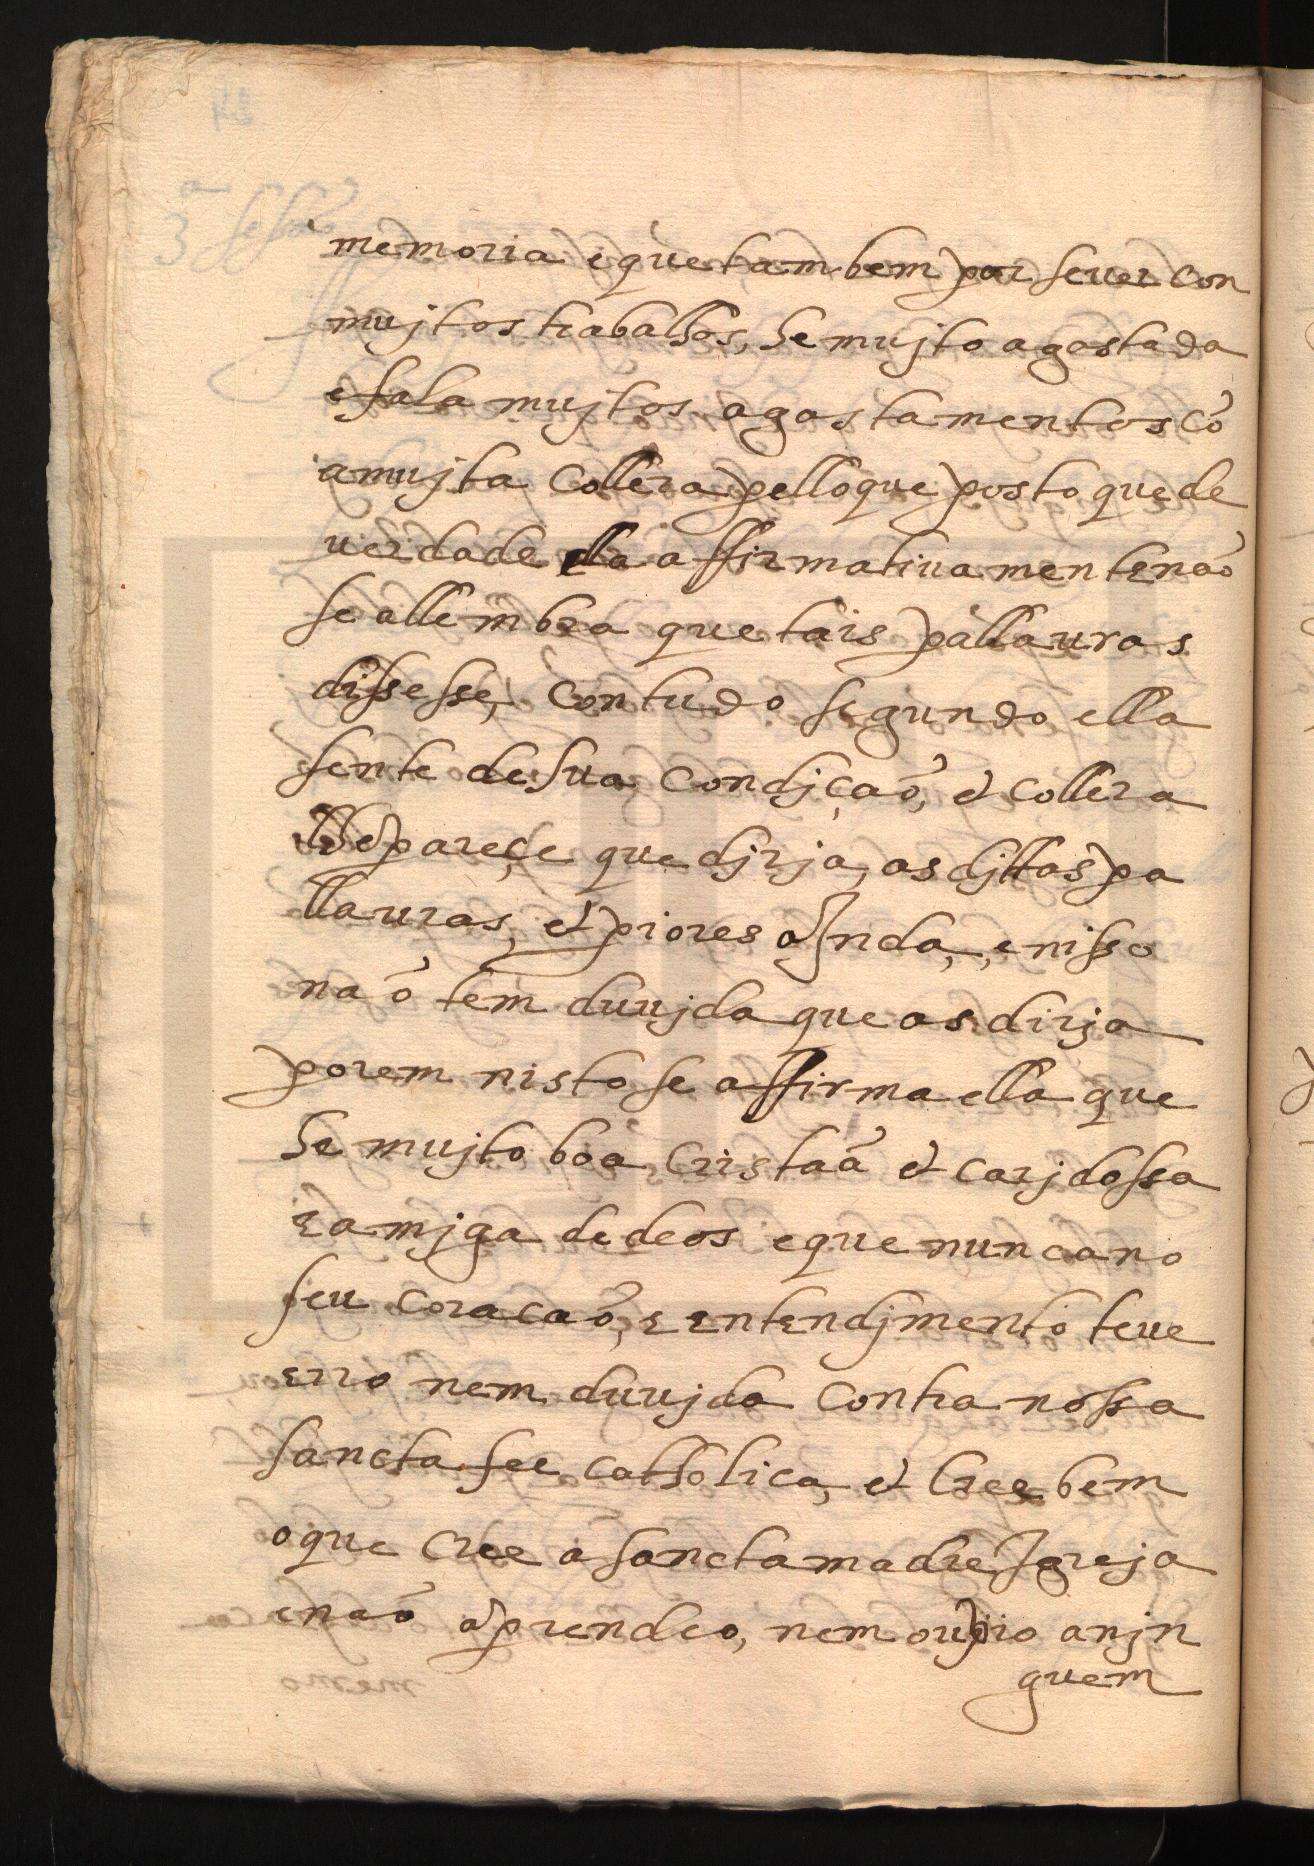 memoria e que tambem por se ver con
mujtos trabalhos, he mujto agastada
e fala mujtos agastamentos cõ
a mujta collera pello que posto que de
verdade ella affirmativamente não
se allembra que tais pallavras
dissesse, contudo segundo ella
sente de sua condjçaõ, et collera
lhe pareçe que djrja as djttas pa
llauras, et piores aJnda, e nisso
naõ tem duujda que as dirja
porem nisto se affirma ella que
he mujto boa cristaã et carjdossa
e amjga de deos e que nunca no
seu coracaõ, e entendjmento teue
erro nem duujda contra nossa
sancta fee catholica, et cree bem
o que cree a sancta madre Jgreja
e naõ aprendeo, nem ouvio a njn
guem